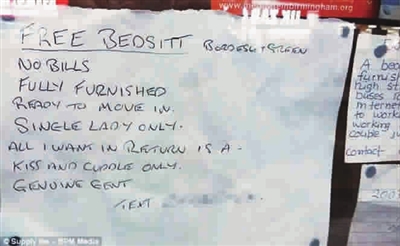 FREE BEDSITT BORDESLEY GREEN
NO BILLS
FULLY FURNISHED
READY TO MOVE IN.
SINGLE LADY ONLY.
ALL I WANT IN RETURN IS A -
KISS AND CUDDLE ONLY.
GENUINE GENT
TEXT
A bed
furnish
high st
buses
internet
to work
working
couple ju
contact
200
© Supply line – BPM Media